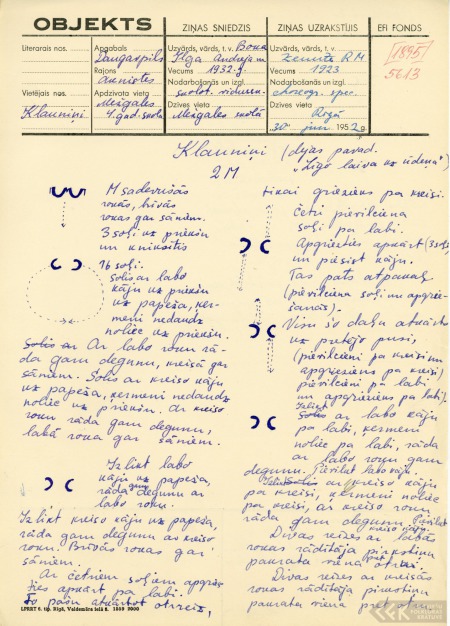 OBJEKTS
ZIŅAS SNIEDZIS
ZIŅAS UZRAKSTĪJIS
EFI FONDS
Literarais nos.
Apgabals
Daugavpils
Rajons
Aknīstes
Vietējais nos.
Klauniņi
Apdzīvota vieta
Mežgales
4.gad. skola
Uzvārds, vārds, t. v.
Ilga Andreja m.
Vecums
1932. g.
Nodarbošanās un izgl.
skolot. vidusm.
Dzīves vieta
Mežgales skolā
Uzvārds, vārds, t. v.
R M
Vecums
1923
Nodarbošanās un izgl.
choreogr. spec.
Dzīves vieta
Rīgā
30. jun. 1952. g.
1895
5613
Klauniņi (dejas pavad.
2 M
"Līgo laiva uz ūdeņa")
M sadevušās
rokās, brīvās
rokas gar sāniem.
3 soļi uz priekšu
un kniksītis
16 soļi.
Solis ar labo
kāju uz priekšu
uz papēža, ķer-
meni nedaudz
noliec uz priekšu.
Ar labo roku rā-
da gar degunu, kreisā gar
sāniem. Solis ar kreiso kāju
uz papēža, ķermeni nedaudz
noliec uz priekšu. Ar kreiso
roku rāda gar degunu,
labā roka gar sāniem.
Izlikt labo
kāju uz papēža,
rāda gar degunu ar
labo roku.
Izlikt kreiso kāju uz papēža,
rāda gar degunu ar kreiso
roku. Brīvās rokas gar
sāniem.
Ar četriem soļiem apgriez-
ties apkārt pa labi.
To pašu atkārtot otrreiz,
tikai grieziens pa kreisi.
Četri pievilciena
soļi pa labi.
Apgriezties apkārt (3 soļi)
un piesist kāju.
Tas pats atpakaļ
(pievilciena soļi un apgrie-
šanās).
Visu šo daļu atkārto
uz pretējo pusi,
(pievilcieni pa kreisi un
apgrieziens pa kreisi,
pievilcieni pa labi
un apgrieziens pa labi).
Izlikt
ar labo kāju
pa labi, ķermeni
noliec pa labi, rāda
ar labo roku gar
degunu. Pievilkt labo kāju.
ar kreiso kāju
pa kreisi, ķermeni noliec
pa kreisi, ar kreiso roku
rāda gar degunu. Pievilkt
kreiso kāju.
Divas reizes ar labās
rokas rādītāja pirkstiņu
pakrata viena otrai.
Divas reizes ar kreisās
rokas rādītāja pirkstiņu
pakrata viena pret otru.
LPRKT 6. tip. Rīgā, Valdemāra ielā 6.